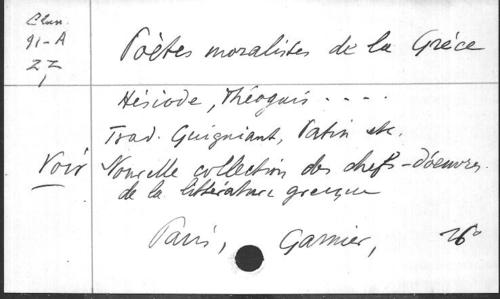 Clas.
91-A
ZZ
Poètes moralistes de la Grèce
Hésiode, Théognis ....
Trad. Guigniaut, Patin etc.
Voir Nouvelle collection des chefs-d'oeuvres
de la littérature grecque
Paris, Garnier,